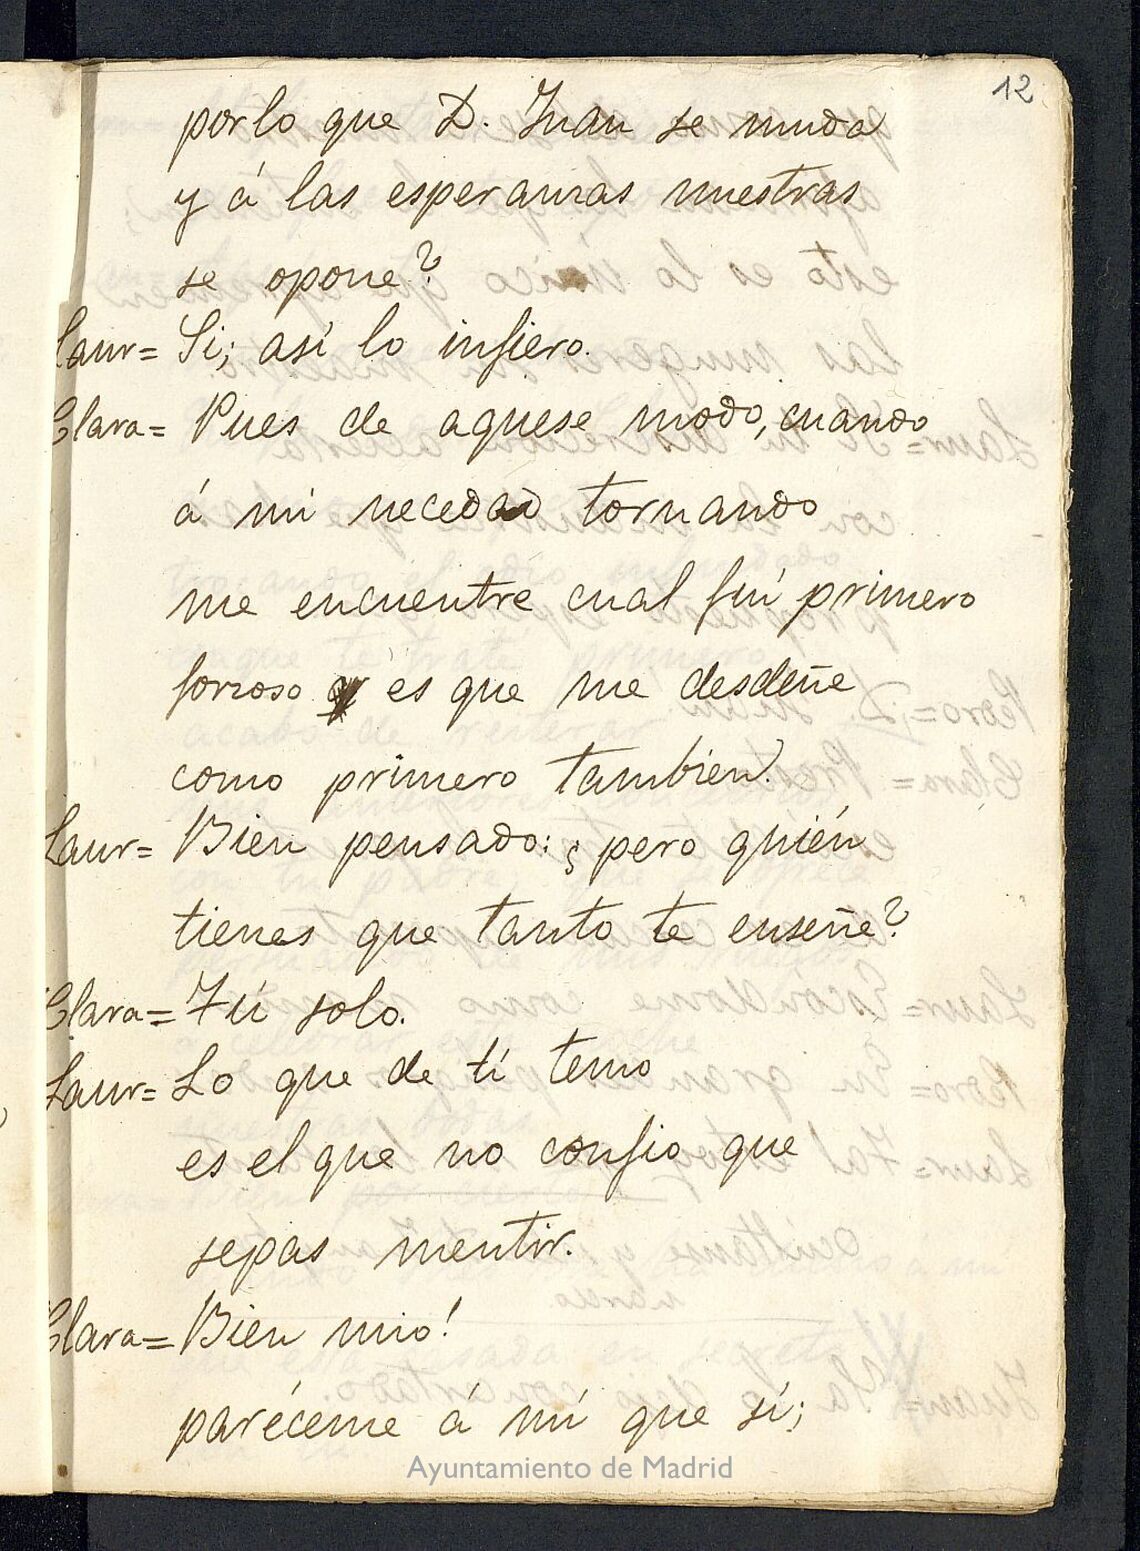 12
por lo que D. Juan se muda
y á las esperanzas nuestras
se opone?
Laur= Si; así lo infiero.
Clara= Pues de aquese modo, cuando
á mi necedad tornando
me encuentre cual fuí primero
forzoso es que me desdeñe
como primero tambien.
Laur= Bien pensado: ¿pero quién
tienes que tanto te enseñe?
Clara= Tú solo.
Laur= Lo que de tí temo
es el que no confio que
sepas mentir.
Clara= Bien mio!
paréceme á mí que sí;
Ayuntamiento de Madrid